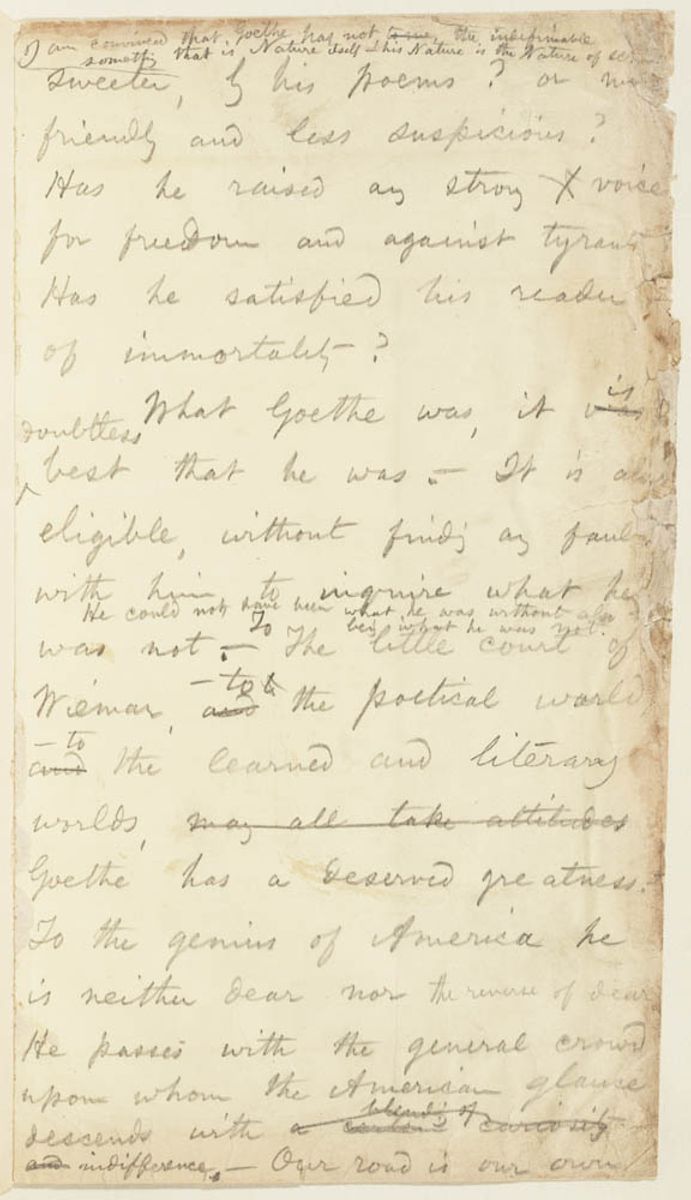 I am convinced that Goethe has not to me, the indefinable
something that is Nature itself this Nature is the Nature of
sweeter, by his poems? or
friendly and less suspicious?
Has he raised any strong voice
for freedom and against tyrants
Has he satisfied his reader
of immortality?
What Goethe was, it was is
doubtless
best that he was.— It is also
eligible, without findg any fault
with him to inquire what he
He could not have been what he was without also
being what he was not.
was not.— To The little court of
— to
Wiemar, and the poetical world,
— to
and the learned and literary
worlds, may all take attitudes
Goethe has a deserved greatness.—
To the genius of America he
is neither dear nor the reverse of dear
He passes with the general crowd
upon whom the American glance
blendg of
descends with a certain curiosity
and indifference.— Our road is our own